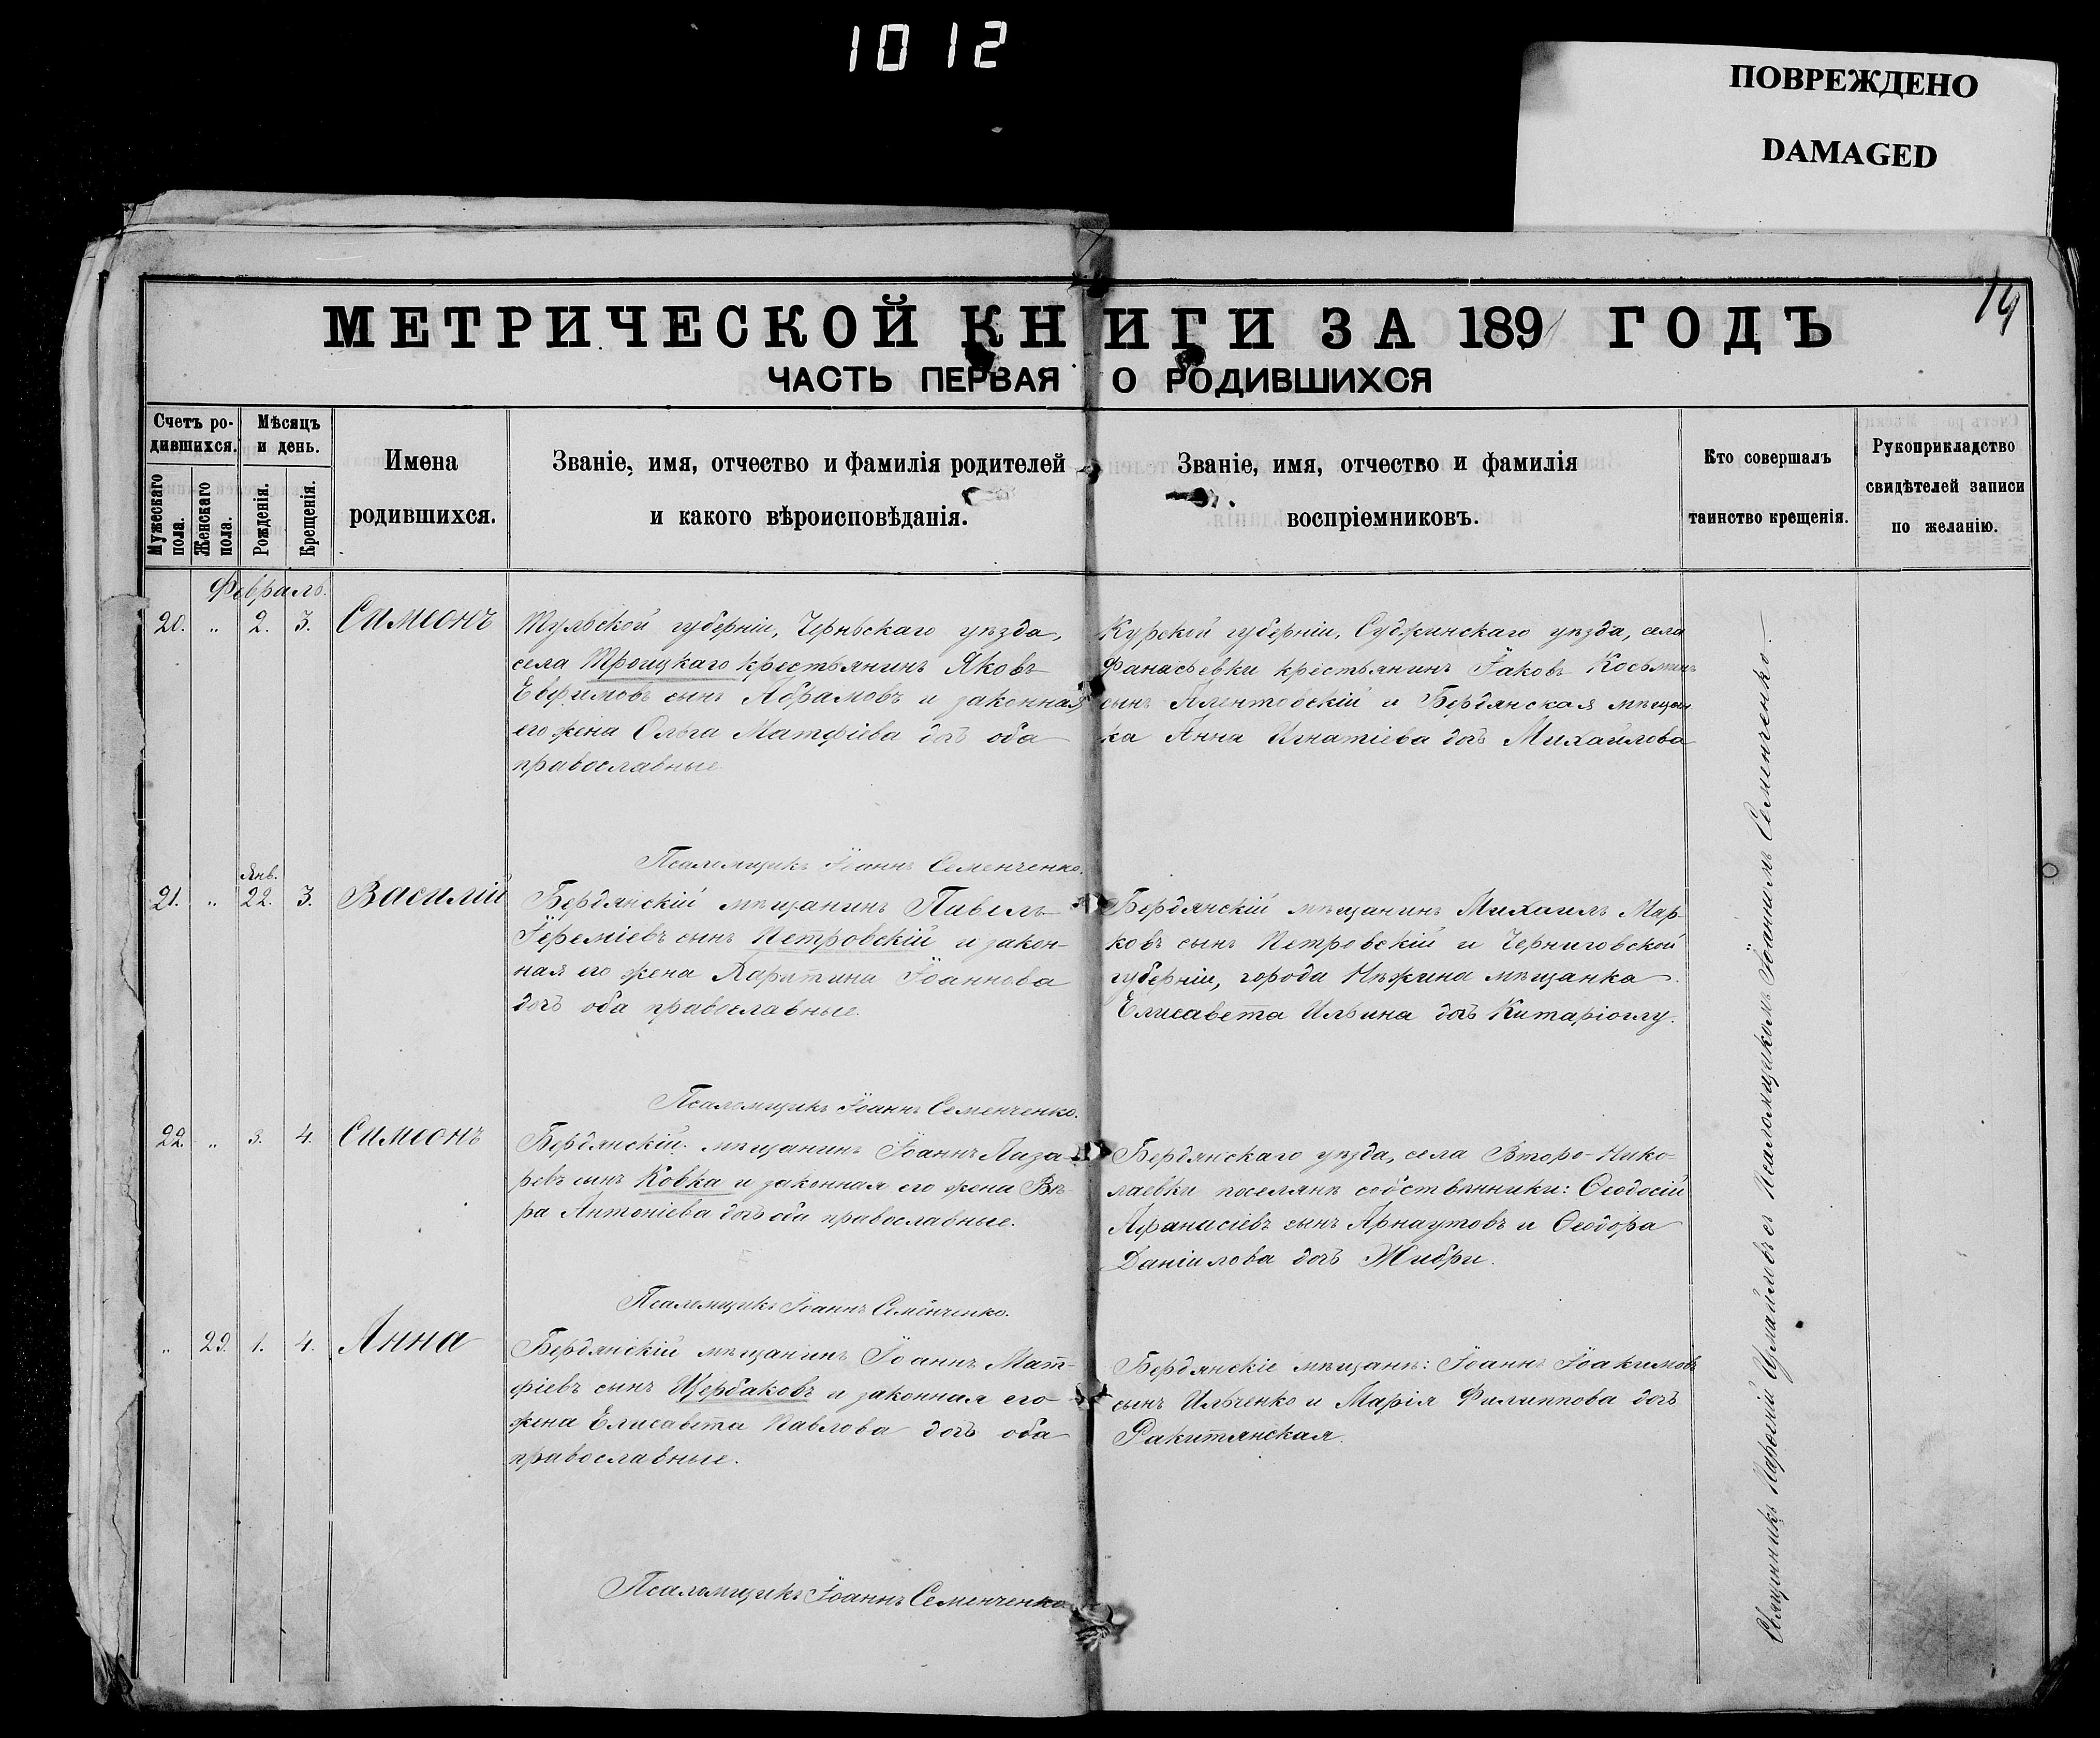 1012
ПОВРЕЖДЕНО
DAMAGED
19
МЕТРИЧЕСКОЙ КНИГИ ЗА 1891 ГОДЪ
ЧАСТЬ ПЕРВАЯ О РОДИВШИХСЯ
Счетъ ро-
дившихся.
Мужескаго пола.
Женскаго пола.
Мѣсяцъ
и день.
Рожденія.
Крещенія.
Имена
родившихся.
Званіе, имя, отчество и фамилія родителей
и какого вѣроисповѣданія.
Званіе, имя, отчество и фамилія
воспріемниковъ.
Кто совершалъ
таинство крещенія.
Рукоприкладство
свидѣтелей записи
по желанію.
Февраль.
20. " 2. 3. Симеонъ
Тульской губерніи, Чернскаго уѣзда,
села Троицкаго крестьянинъ Яковъ
Евфимовъ сынъ Абрамовъ и законная
его жена Ольга Матфіева дочь оба
православные
Курской губерніи, Суджинскаго уѣзда, села
Фанасьевки крестьянинъ Іаковъ Косьминъ
сынъ и Бердянская мѣщан
ка Анна Игнатіева дочь Михайлова
Псаломщикъ Іоаннъ Семенченко.
Янв.
21. " 22. 3. Василій
Бердянскій мѣщанинъ Павелъ
Іереміевъ сынъ Петровскій и закон-
ная его жена Харитина Іоаннова
дочь оба православные.
Бердянскій мѣщанинъ Михаилъ Мар-
ковъ сынъ Петровскій и Черниговской
губерніи, города Нѣжина мѣщанка
Елисавета Ильина дочь Китаріоглу.
Псаломщикъ Іоаннъ Семенченко.
22. " 3. 4. Симеонъ
Бердянскій мѣщанинъ Іоаннъ Лаза-
ревъ сынъ Ковка и законная его жена Вѣ-
ра Антоніева дочь оба православные.
Бердянскаго уѣзда, села Второ-Нико-
лаевки поселяне собственники: Ѳеодосій
Афанасіевъ сынъ Арнаутовъ и Ѳеодора
Даніилова дочь Жибри.
Псаломщикъ Іоаннъ Семенченко.
" 23. 1. 4. Анна
Бердянскій мѣщанинъ Іоаннъ Мат-
фіевъ сынъ Щербаковъ и законная его
жена Елисавета Павлова дочь оба
православные.
Бердянскіе мѣщане: Іоаннъ Іоакимовъ
сынъ Ильченко и Марія Филиппова дочь
Ракитянская.
Псаломщикъ Іоаннъ Семенченко
Священникъ съ Псаломщикомъ Іоанномъ Семенченко.